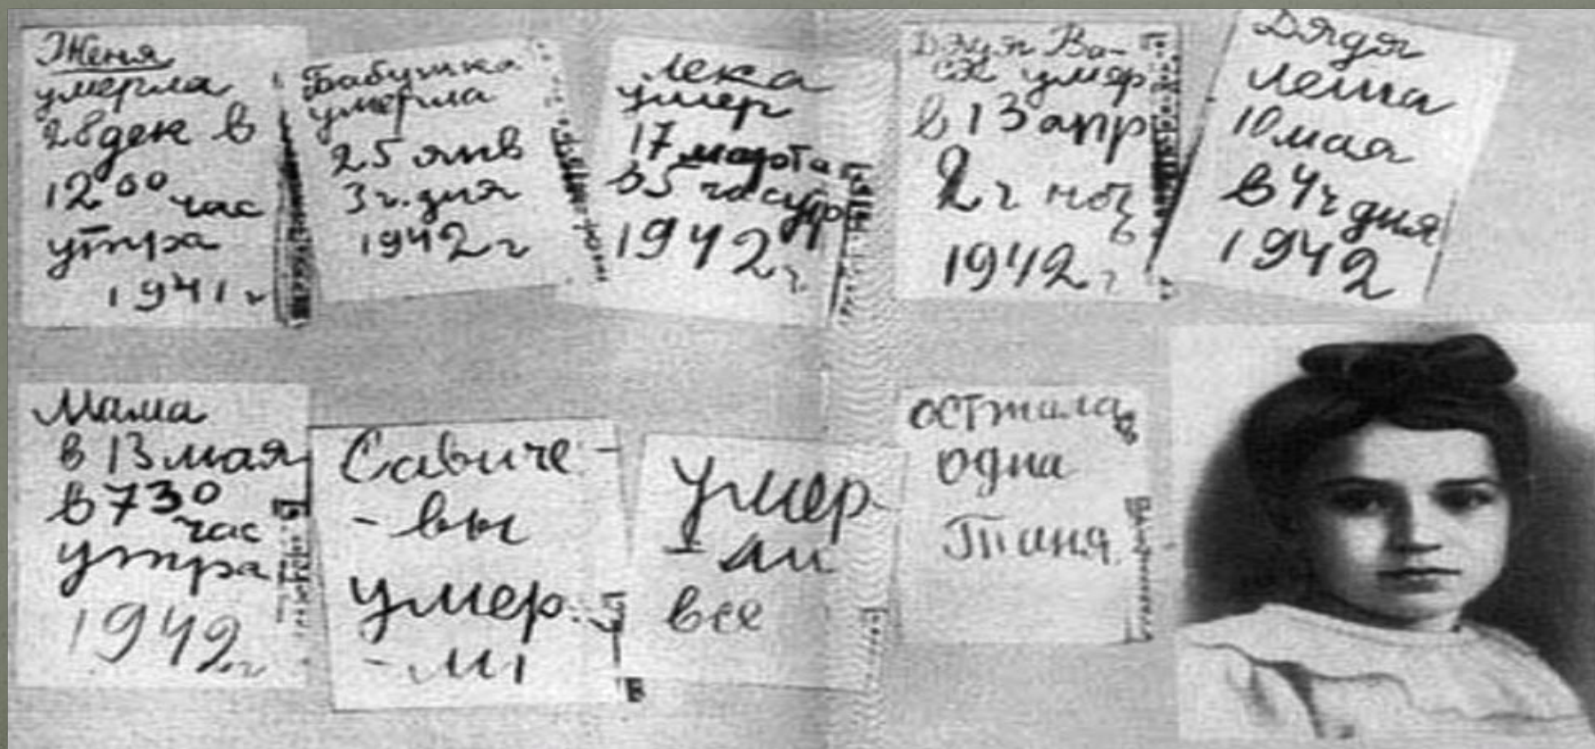 Женя
умерла
28 дек в
12 00 час
утра
1941 г
Бабушка
умерла
25 янв
3 ч. дня
1942 г
Лека
умер
17 марта
в 5 час утр
1942 г
Дядя Ва-
ся умер
в 13 апр
2 ч ночь
1942 г
Дядя
Леша
10 мая
в 4 ч дня
1942
Мама
в 13 мая
в 730
час
утра
1942 г
Савиче-
-вы
умер-
-ли
Умер-
-ли
все
осталась
одна
Таня